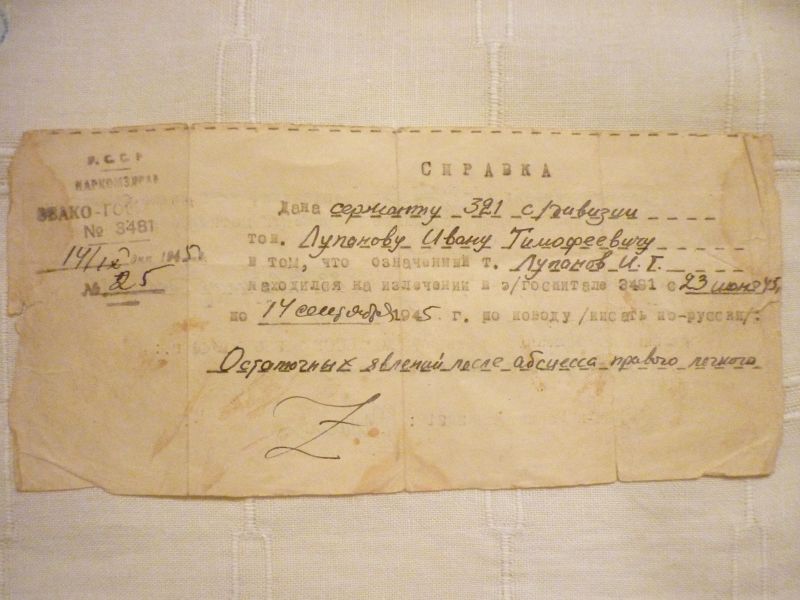 С.С.С.Р
НАРКОМЗДРАВ
ЭВАКО-ГОСПИТАЛЬ
№ 3481
14/IX 1945
№ 25
СПРАВКА
Дана сержанту 321 с.дивизии
тов. Лупанову Ивану Тимофеевичу
в том, что означенный т. Лупанов И.Т.
находился на излечении в э/госпитале 3481 с 23 июня 45,
по 14 сентября 1945 г. по поводу /писать по-русски/:
Остаточных явлений после абсцесса правого легкого